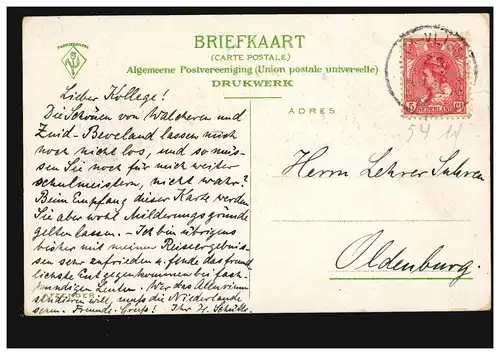 BRIEFKAART
(CARTE POSTALE)
Algemeene Postvereeniging (Union postale universelle)
DRUKWERK
ADRES
5 Ct
NEDERLAND
54
Lieber Kollege!
Die Schönen von Walcheren und
Zuid-Beveland lassen mich
noch nicht los, und so müs-
sen Sie noch für mich weiter
schulmeistern, nicht wahr?
Beim Empfang dieser Karte werden
Sie aber wohl Milderungsgründe
gelten lassen. Ich bin übrigens
bisher mit meinen Reiseergebnis-
sen sehr zufrieden u. finde das freund-
lichste Entgegenkommen bei fach-
kundigen Leuten. Wer das Alluvium
studieren will, muß die Niederlande
sehen. Freundl. Gruß! Ihr H. Schütte.
AFZENDER
Herrn Lehrer Suhren
Oldenburg.